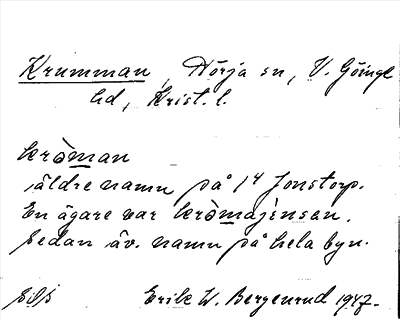 Krumman, Nörja sn, V. Göinge
hd, Krist. l.
kròman
äldre namn på 14 Jonstorp.
En ägare var kròmajènsen.
Sedan äv. namn på hela byn.
Erik W. Bergenrud 1947.